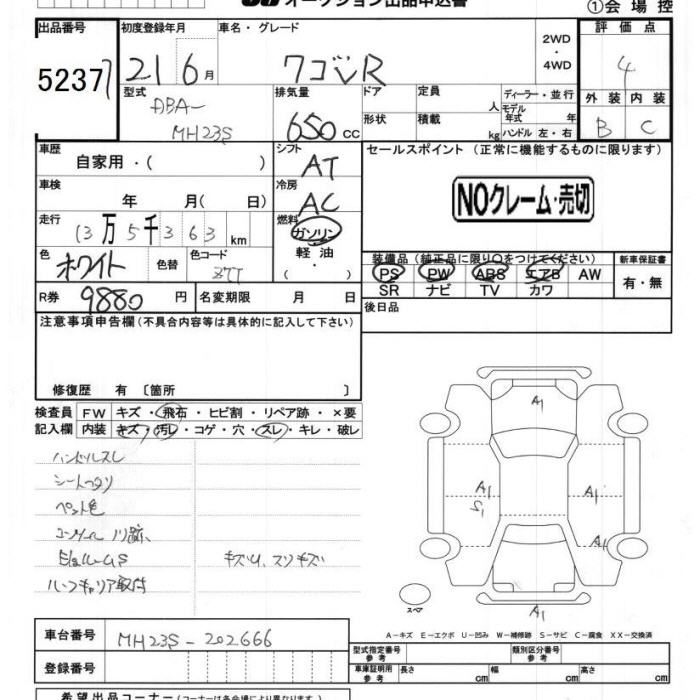 オークション出品申込書
①会場控
出品番号 初度登録年月 車名・グレード 2WD・4WD 評価点
5237 21 6月 ワゴンR 4
型式 排気量 ドア 定員 人 ディーラー・並行 外装 内装
モデル年式 年式
ABA- MH23S 650cc 形状 積載 kg ハンドル 左・右 B C
車歴 シフト セールスポイント (正常に機能するものに限ります)
自家用・( ) AT
車検 冷房
年 月( 日) AC NOクレーム・売切
走行 燃料
13万5千363km ガソリン
軽油
(・)
装備品(純正品に限り○をつけてください) 新車保証書
色 色替 色コード
ホワイト Z7T
PS PW ABS エアB AW 有・無
SR ナビ TV カワ
R券 9880円 名変期限 月 日
後日品
注意事項申告欄(不具合内容等は具体的に記入して下さい)
修復歴 有 〔箇所 〕
検査員 FW キズ・飛石・ヒビ割・リペア跡・×要
記入欄 内装 キズ・汚レ・コゲ・穴・スレ・キレ・破レ
ハンドルスレ
シート
ペット毛
キズU、スリキズ
ルーフキャリア取付
A1
A1 A1
S1
A1
A1
スペア
A-キズ E-エクボ U-凹み W-補修跡 S-サビ C-腐食 XX-交換済
車台番号 MH23S-202666
型式指定番号 参考 類別区分番号 参考
登録番号
車庫証明用 参考 長さ cm 幅 cm 高さ cm
希望出品コーナー(コーナーは各会場により異なります。)